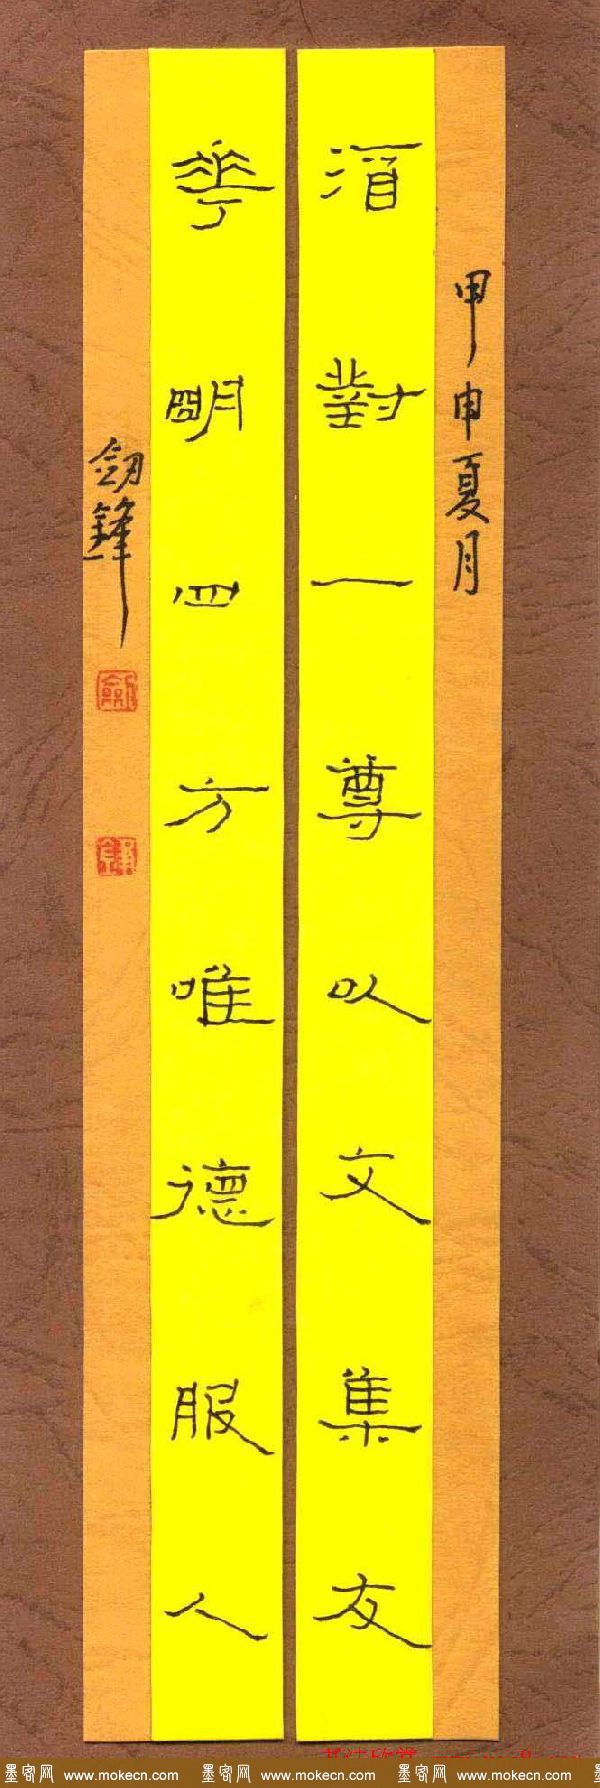 甲申夏月
酒對一尊以文集友
華明四方唯德服人
劍鋒
墨客网 www.mokecn.com 墨客网 www.mokecn.com 墨客网 www.mokecn.com